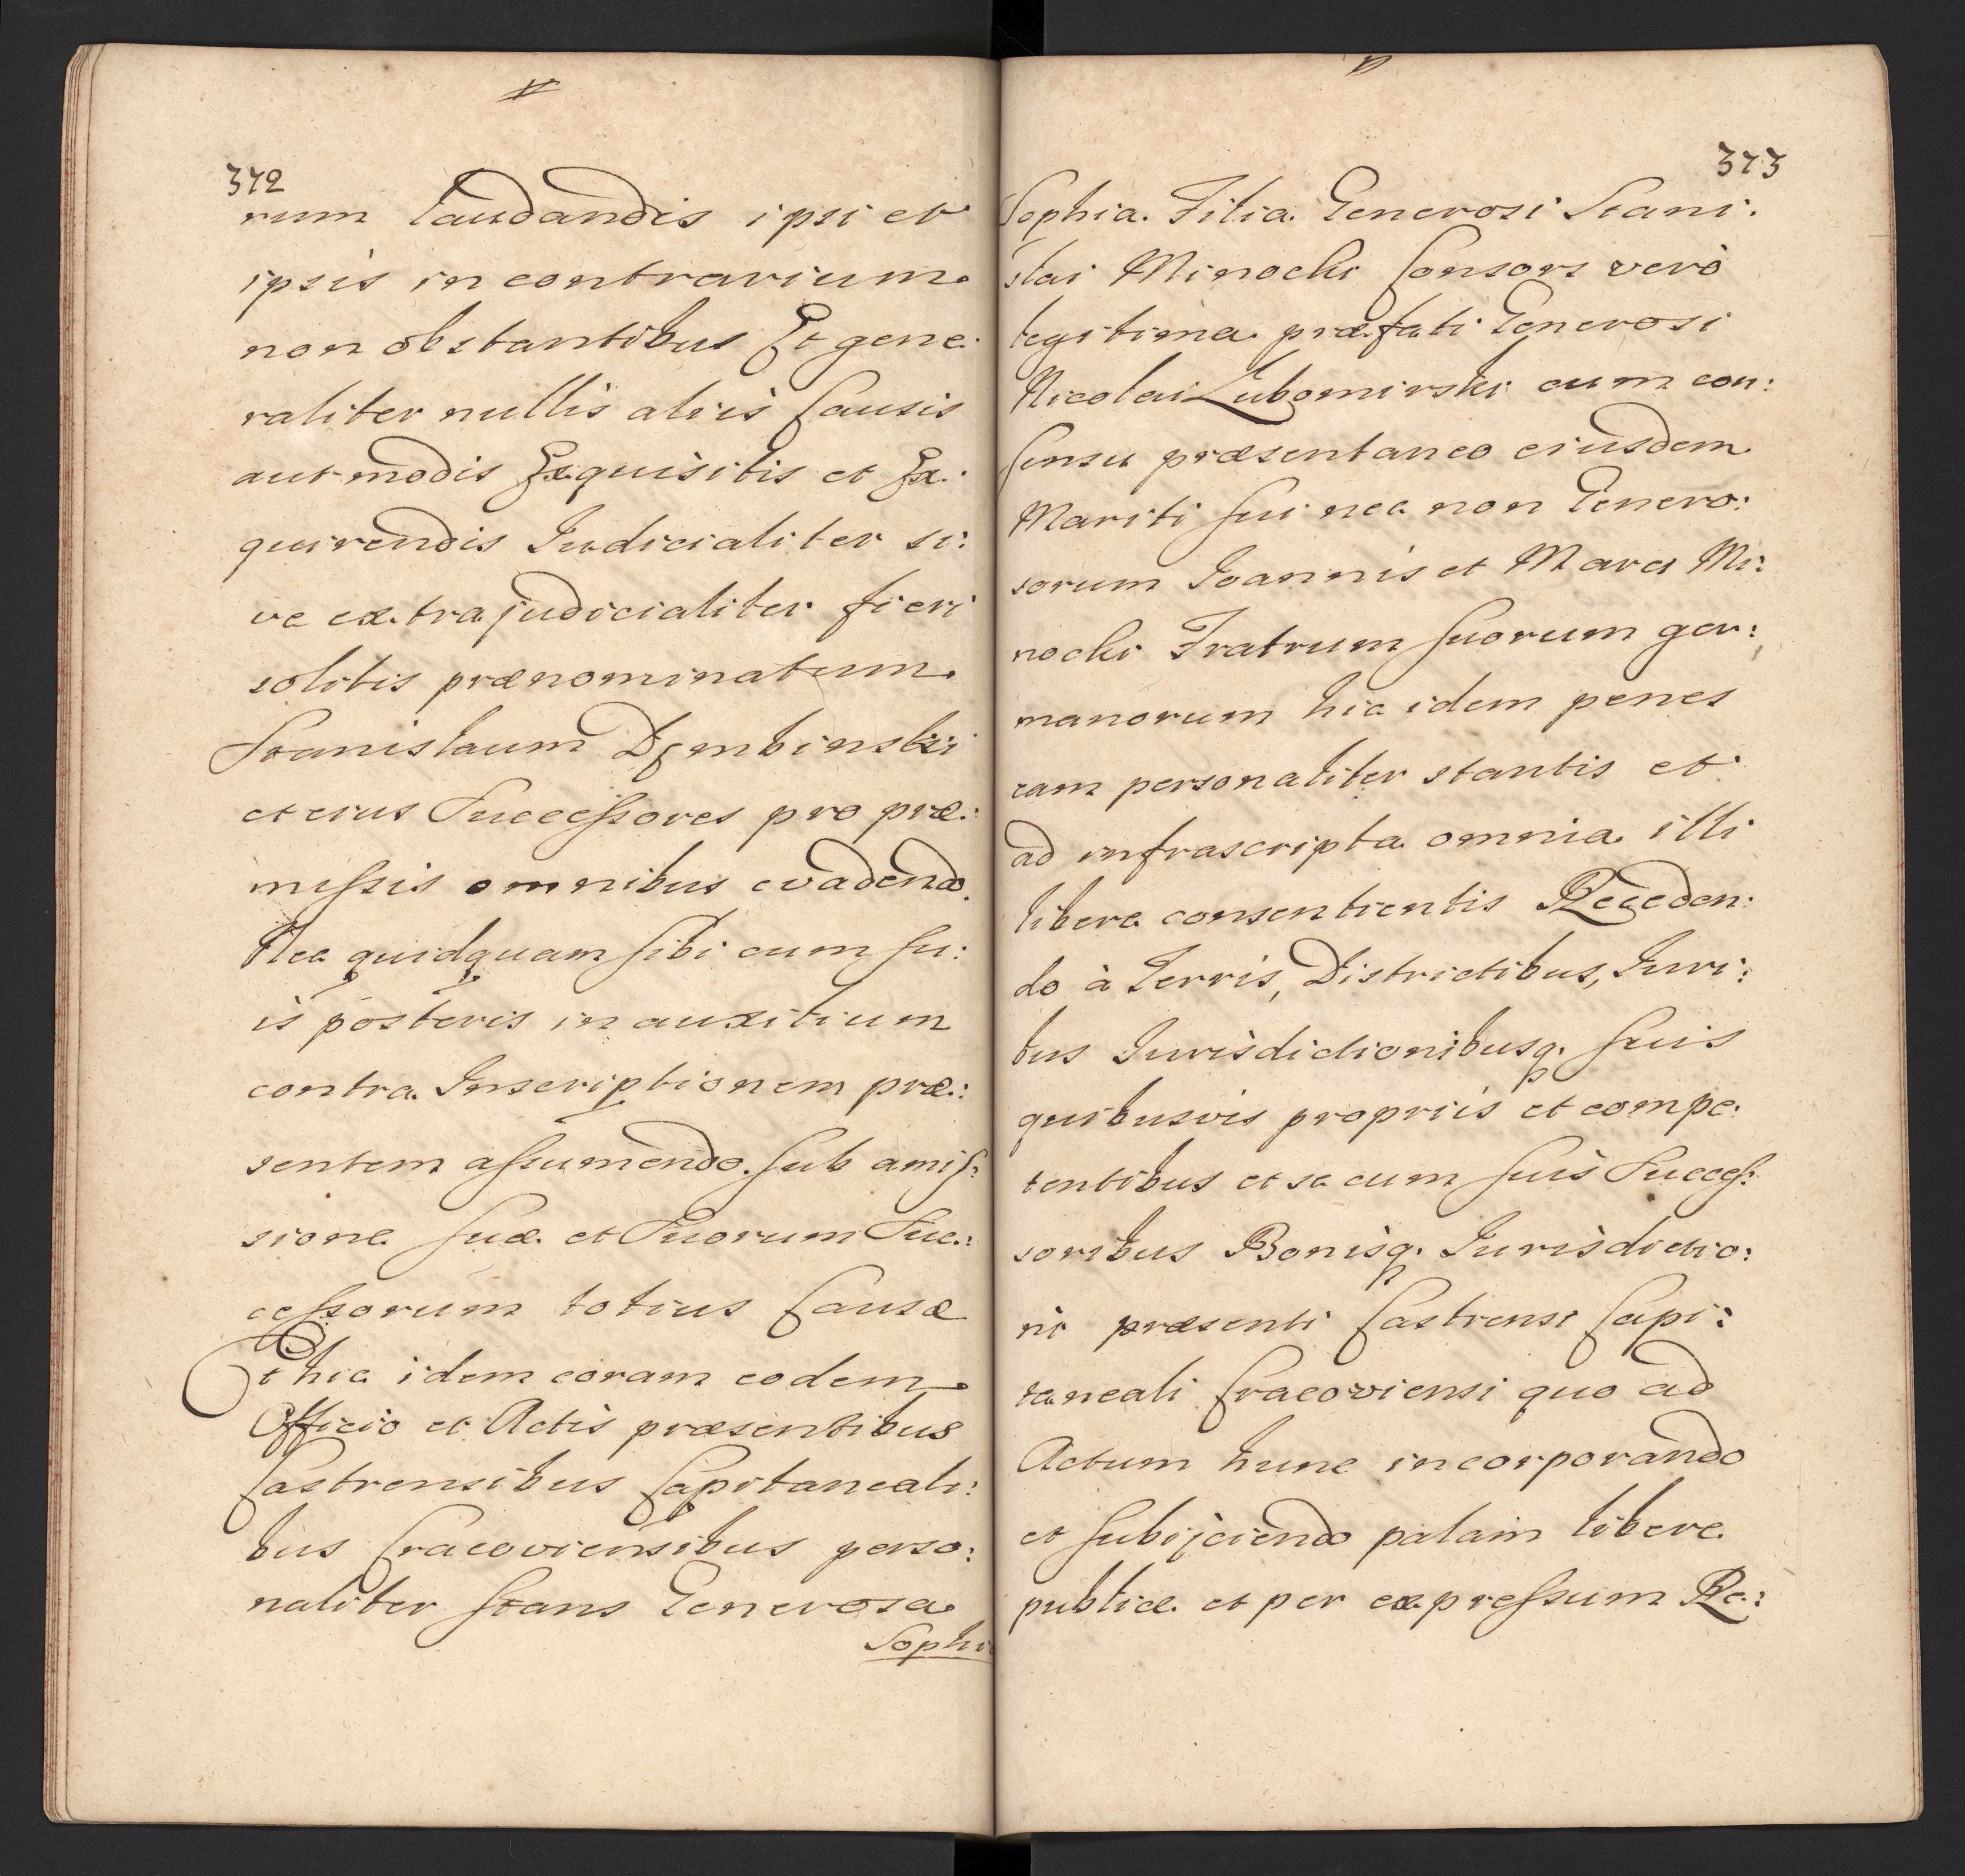 372
rum laudandis ipsi et
ipsis in contrarium
non obstantibus Et gene:
raliter nullis aliis Causis
aut modis Exquisitis et Ex:
quirendis Iudicialiter si:
ve extrajudicialiter fieri
solitis prænominatum
Stanislaum Dembinski
et eius Successores pro præ:
missis omnibus evadendo.
Nec quidquam sibi cum su:
is posteris in auxilium
contra Inscriptionem præ:
sentem assumendo. sub amis:
sione suæ et Suorum Suc:
cessorum totius Causæ
Et hic idem coram eodem
Officio et Actis præsentibus
Castrensibus Capitaneali:
bus Cracoviensibus perso:
naliter stans Generosa
Sophia
373
Sophia Filia Generosi Stani:
slai Minocki Consors verò
legitima præfati Generosi
Nicolai Lubomirski cum con:
sensu præsentaneo eiusdem
Mariti sui nec non Genero:
sorum Joannis et Marci Mi:
nocki Fratrum suorum ger:
manorum hic idem penes
eam personaliter stantis et
ad infrascripta omnia illi
libere consentientis Receden:
do à Terris, Districtibus, Iuri:
bus Iurisdictionibusq. suis
quibusvis propriis et compe:
tentibus et se cum suis Succes:
soribus Bonisq. Iurisdictio:
ni præsenti Castrensi Capi:
taneali Cracoviensi quo ad
Actum hunc incorporando
et subijciendo palam libere
publice et per expressum Re: